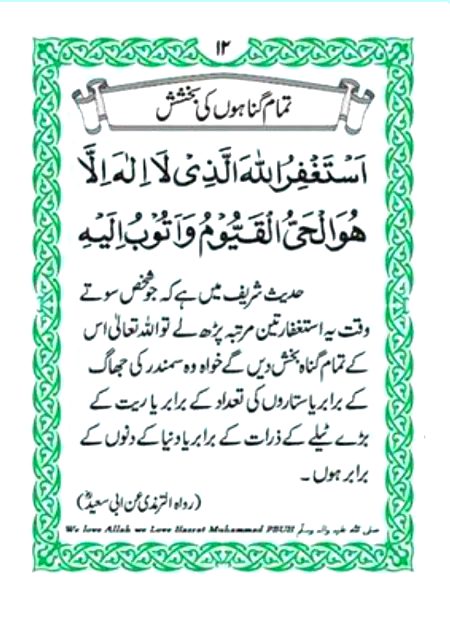 ۱۲
تمام گناہوں کی بخشش
اَسْتَغْفِرُ اللهَ الَّذِیْ لَا اِلٰهَ اِلَّا
هُوَ الْحَیُّ الْقَیُّوْمُ وَاَتُوْبُ اِلَیْهِ
حدیث شریف میں ہے کہ جو شخص سوتے
وقت یہ استغفار تین مرتبہ پڑھ لے تو اللہ تعالیٰ اس
کے تمام گناہ بخش دیں گے خواہ وہ سمندر کی جھاگ
کے برابر یا ستاروں کی تعداد کے برابر یا ریت کے
بڑے ٹیلے کے ذرات کے برابر یا دنیا کے دنوں کے
برابر ہوں ۔
(رواہ الترمذی عن ابی سعیدؓ)
We love Allah we Love Hazrat Muhammad PBUH صلی اللہ علیہ والہ وسلم